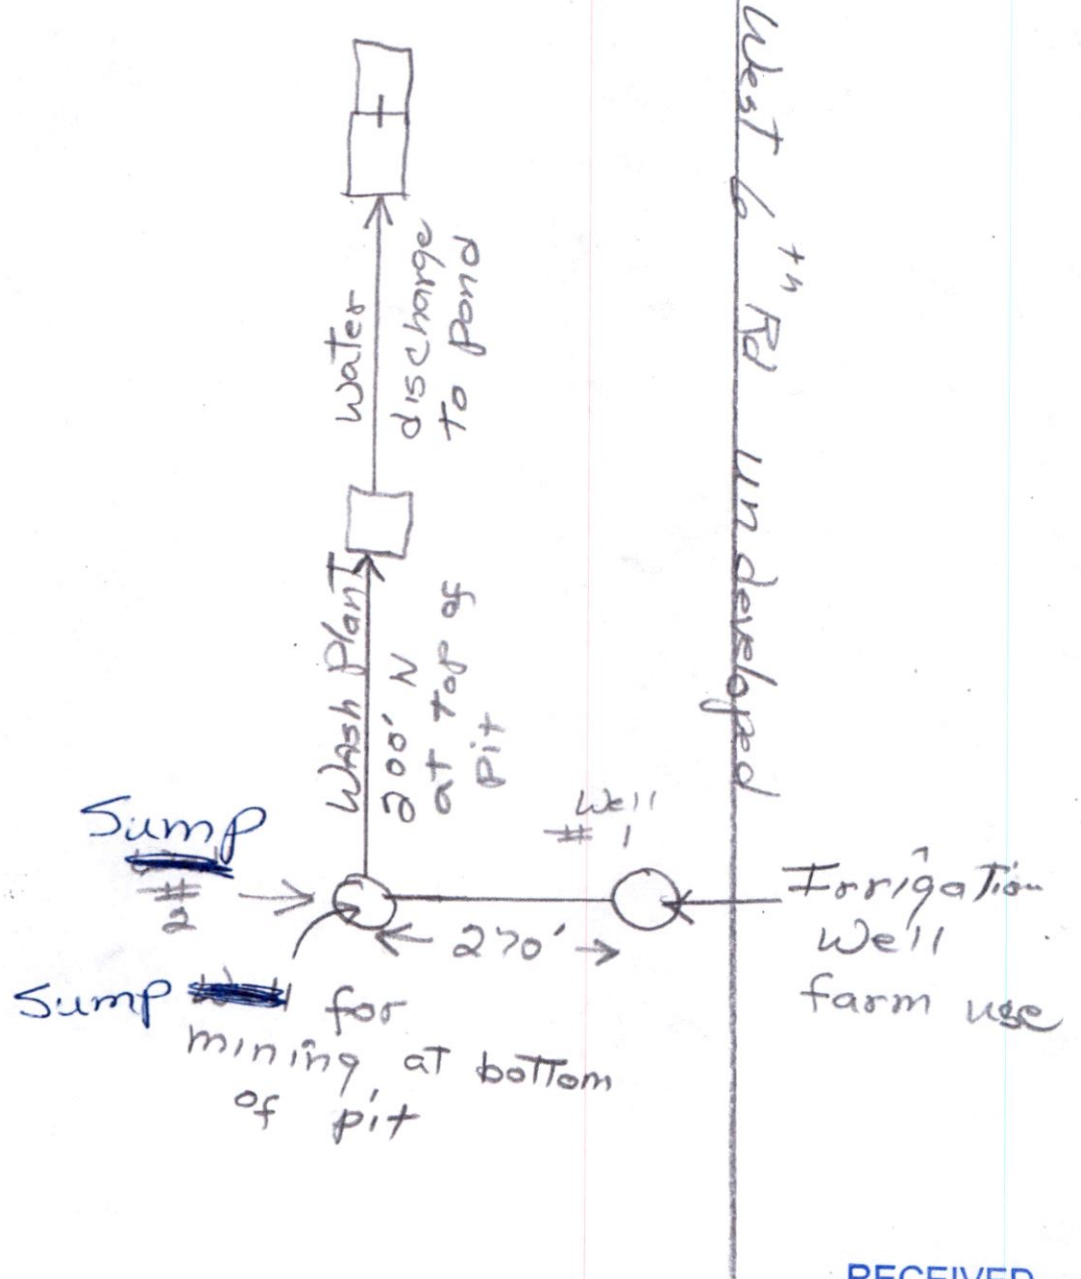 West 6th Rd undeveloped
Water
discharge
to pond
Wash Plant
200' N
at top of
pit
Well
# 1
Sump
#
2
270'
Irrigation
Well
farm use
Sump for
mining at bottom
of pit
RECEIVED